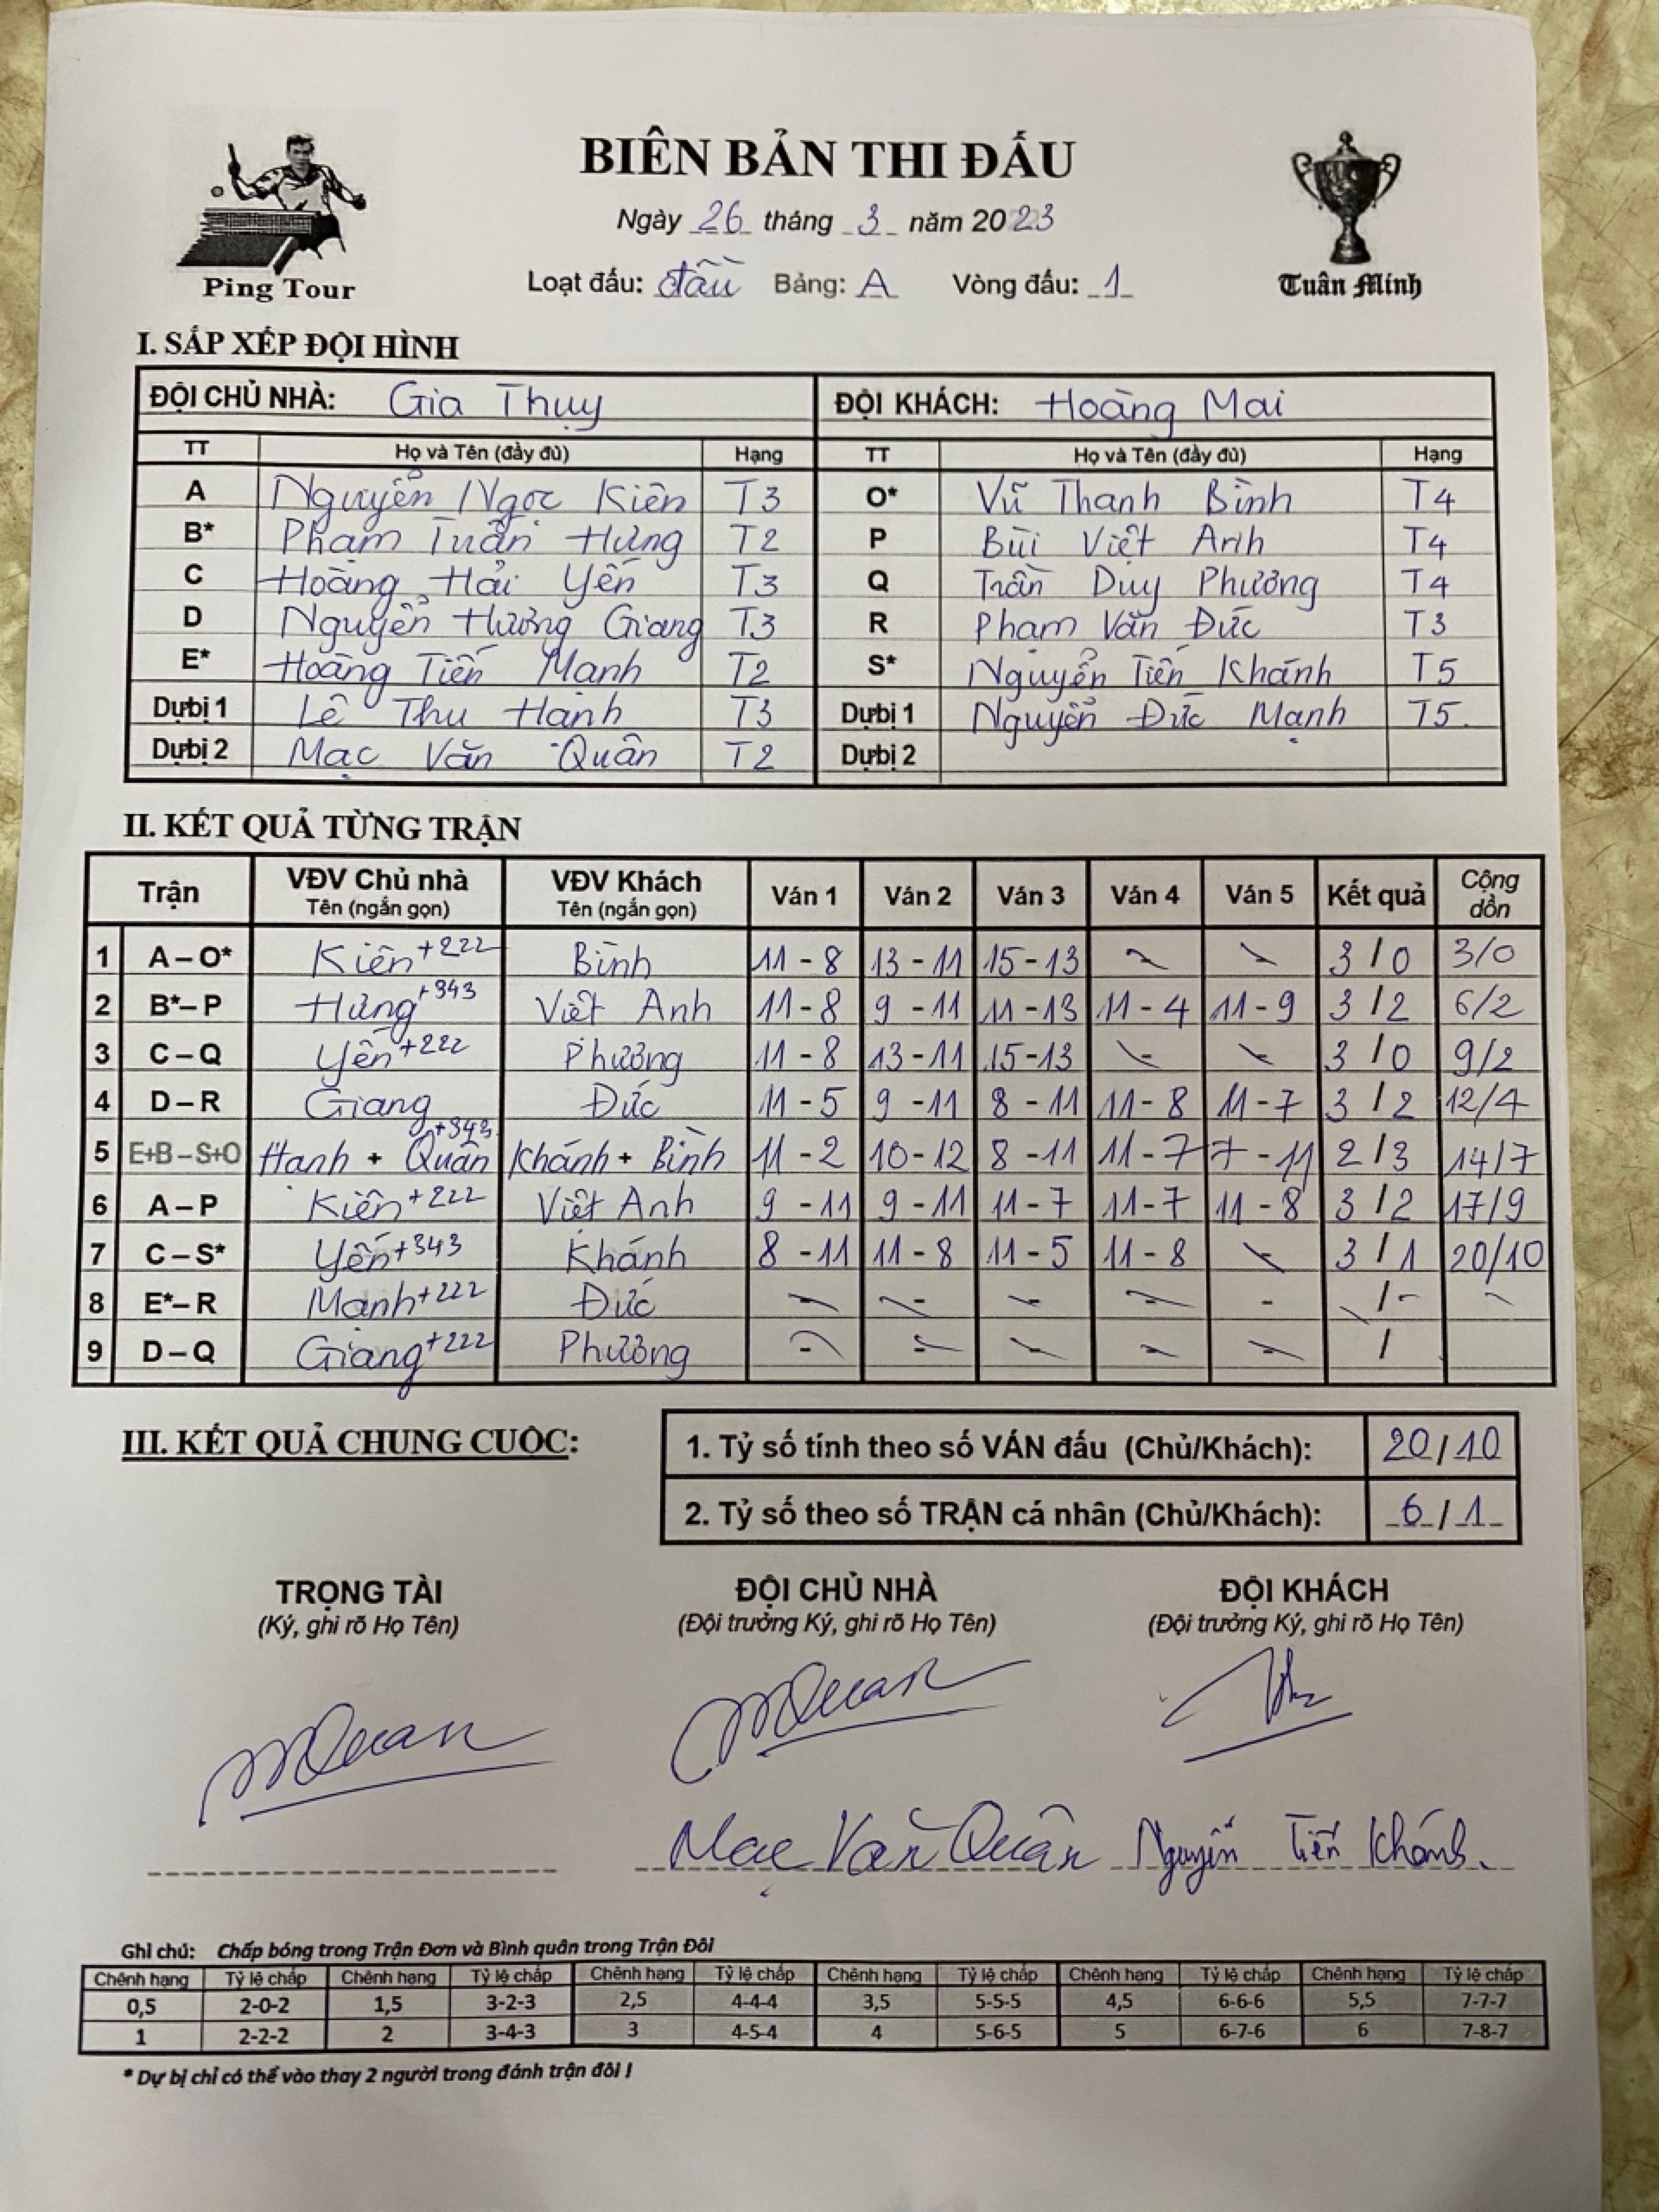 BIÊN BẢN THI ĐẤU
Ngày 26 tháng 3 năm 2023
Loạt đấu: đầu Bảng: A Vòng đấu: 1
Ping Tour
Tuấn Minh
I. SẮP XẾP ĐỘI HÌNH
ĐỘI CHỦ NHÀ: Gia Thụy ĐỘI KHÁCH: Hoàng Mai
TT Họ và Tên (đầy đủ) Hạng TT Họ và Tên (đầy đủ) Hạng
A Nguyễn Ngọc Kiên T3 O* Vũ Thanh Bình T4
B* Phạm Tuấn Hưng T2 P Bùi Việt Anh T4
C Hoàng Hải Yến T3 Q Trần Duy Phương T4
D Nguyễn Hương Giang T3 R Phạm Văn Đức T3
E* Hoàng Tiến Mạnh T2 S* Nguyễn Tiến Khánh T5
Dự bị 1 Lê Thu Hạnh T3 Dự bị 1 Nguyễn Đức Mạnh T5
Dự bị 2 Mạc Văn Quân T2 Dự bị 2
II. KẾT QUẢ TỪNG TRẬN
Trận VĐV Chủ nhà Tên (ngắn gọn) VĐV Khách Tên (ngắn gọn) Ván 1 Ván 2 Ván 3 Ván 4 Ván 5 Kết quả Cộng dồn
1 A – O* Kiên +222 Bình 11 - 8 13 - 11 15 - 13 - - 3 / 0 3/0
2 B* – P Hưng +343 Việt Anh 11 - 8 9 - 11 11 - 13 11 - 4 11 - 9 3 / 2 6/2
3 C – Q Yến +222 Phương 11 - 8 13 - 11 15 - 13 - - 3 / 0 9/2
4 D – R Giang Đức 11 - 5 9 - 11 8 - 11 11 - 8 11 - 7 3 / 2 12/4
5 E+B – S+O Hạnh + Quân +343 Khánh + Bình 11 - 2 10 - 12 8 - 11 11 - 7 7 - 11 2 / 3 14/7
6 A – P Kiên +222 Việt Anh 9 - 11 9 - 11 11 - 7 11 - 7 11 - 8 3 / 2 17/9
7 C – S* Yến +343 Khánh 8 - 11 11 - 8 11 - 5 11 - 8 - 3 / 1 20/10
8 E* – R Mạnh +222 Đức - - - - - /
9 D – Q Giang +222 Phương - - - - - /
III. KẾT QUẢ CHUNG CUỘC:
1. Tỷ số tính theo số VÁN đấu (Chủ/Khách): 20 / 10
2. Tỷ số theo số TRẬN cá nhân (Chủ/Khách): 6 / 1
TRỌNG TÀI ĐỘI CHỦ NHÀ ĐỘI KHÁCH
(Ký, ghi rõ Họ Tên) (Đội trưởng Ký, ghi rõ Họ Tên) (Đội trưởng Ký, ghi rõ Họ Tên)
MQuan MQuan
Mạc Văn Quân Nguyễn Tiến Khánh.
Ghi chú: Chấp bóng trong Trận Đơn và Bình quân trong Trận Đôi
Chênh hạng Tỷ lệ chấp Chênh hạng Tỷ lệ chấp Chênh hạng Tỷ lệ chấp Chênh hạng Tỷ lệ chấp Chênh hạng Tỷ lệ chấp Chênh hạng Tỷ lệ chấp
0,5 2-0-2 1,5 3-2-3 2,5 4-4-4 3,5 5-5-5 4,5 6-6-6 5,5 7-7-7
1 2-2-2 2 3-4-3 3 4-5-4 4 5-6-5 5 6-7-6 6 7-8-7
* Dự bị chỉ có thể vào thay 2 người trong đánh trận đôi !